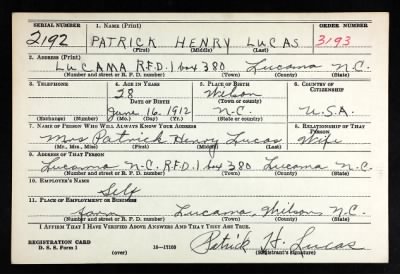 SERIAL NUMBER 1. NAME (Print) ORDER NUMBER
2192 PATRICK HENRY LUCAS 3193
(First) (Middle) (Last)
2. ADDRESS (Print)
LUCAMA R.F.D. 1 box 380 Lucama N.C.
(Number and street or R. F. D. number) (Town) (County) (State)
3. TELEPHONE 4. AGE IN YEARS 5. PLACE OF BIRTH 6. COUNTRY OF CITIZENSHIP
28 Wilson
DATE OF BIRTH (Town or county)
June 16, 1912 N-C. U.S.A.
(Exchange) (Number) (Mo.) (Day) (Yr.) (State or country)
7. NAME OF PERSON WHO WILL ALWAYS KNOW YOUR ADDRESS 8. RELATIONSHIP OF THAT PERSON
Mrs Patrick Henry Lucas Wife
(Mr., Mrs., Miss) (First) (Middle) (Last)
9. ADDRESS OF THAT PERSON
Lucama N.C. R.F.D. 1 box 380 Lucama N.C.
(Number and street or R. F. D. number) (Town) (County) (State)
10. EMPLOYER'S NAME
Self
11. PLACE OF EMPLOYMENT OR BUSINESS
Lucama, Wilson N.C.
(Number and street or R. F. D. number) (Town) (County) (State)
I AFFIRM THAT I HAVE VERIFIED ABOVE ANSWERS AND THAT THEY ARE TRUE.
REGISTRATION CARD
D. S. S. Form 1 (over) 16-17105
Patrick H. Lucas
(Registrant's signature)